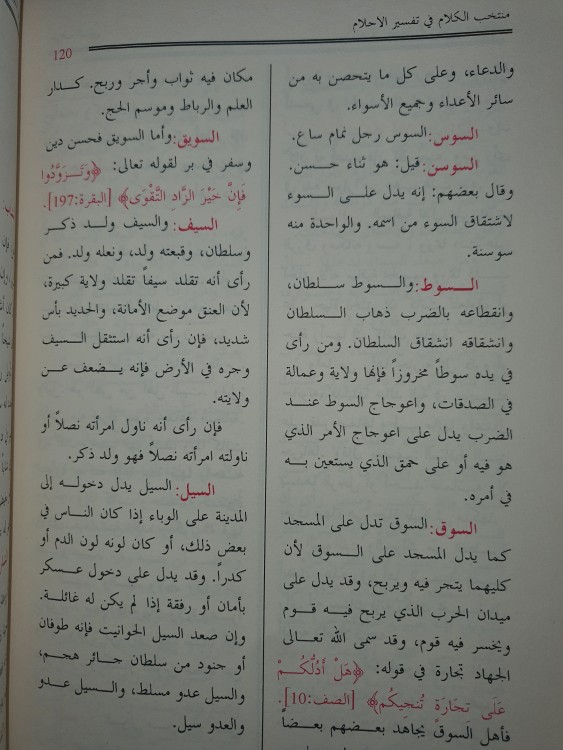 منتخب الكلام في تفسير الاحلام
120
والدعاء، وعلى كل ما يتحصن به من
سائر الأعداء وجميع الأسواء.
السوس: السوس رجل نمام ساع.
السوسن: قيل: هو ثناء حسن.
وقال بعضهم: إنه يدل علـى السوء
لاشتقاق السوء من اسمه. والواحدة منه
سوسنة.
الـسوط: والـسوط سلطان،
وانقطاعه بالضرب ذهاب الـسلطان
وانشقاقه انشقاق السلطان. ومن رأى
في يده سوطاً مخروزاً فإنها ولاية وعمالة
في الصدقات، واعوجاج السوط عنـد
الضرب يدل على اعوجاج الأمر الذي
هو فيه أو على حمق الذي يستعين بـه
في أمره.
السوق: السوق تدل على المسجد
كما يدل المسجد على الـسوق لأن
كليهما يتجر فيه ويربح، وقد يدل على
ميدان الحرب الذي يربح فيـه قـوم
ويخسر فيه قوم، وقد سمى الله تعالى
الجهاد تجارة في قوله: ﴿هَلْ أَدُلُّكُـمْ
عَلَى تِجَارَةٍ تُنجِيكُم﴾ [الصف:10].
فأهل السوق يجاهد بعضهم بعضاً
مكان فيه ثواب وأجر وربح. كـدار
العلم والرباط وموسم الحج.
السويق: وأما السويق فحسن دين
وسفر في بر لقوله تعالى: ﴿وَتَـزَوَّدُوا
فَإِنَّ خَيْرَ الزَّادِ التَّقْوَى﴾ [البقرة:197].
السيف: والسيف ولـد ذكـر
وسلطان، وقبعته ولد، ونعله ولد. فمن
رأى أنه تقلد سيفاً تقلد ولاية كبيرة،
لأن العنق موضع الأمانة، والحديد بأس
شديد، فإن رأى أنه استثقل الـسيف
وجره في الأرض فإنه يـضعف عـن
ولايته.
فإن رأى أنه ناول امرأته نصلاً أو
ناولته امرأته نصلاً فهو ولد ذكر.
السيل: السيل يدل دخولـه إلى
المدينة على الوباء إذا كان الناس في
بعض ذلك، أو كان لونه لون الدم أو
كدراً. وقد يدل على دخول عـسكر
بأمان أو رفقة إذا لم يكن له غائلة.
وإن صعد السيل الحوانيت فإنه طوفان
أو جنود من سلطان جائر هجـم،
والسيل عدو مسلط، والـسيل عدو
والعدو سيل.